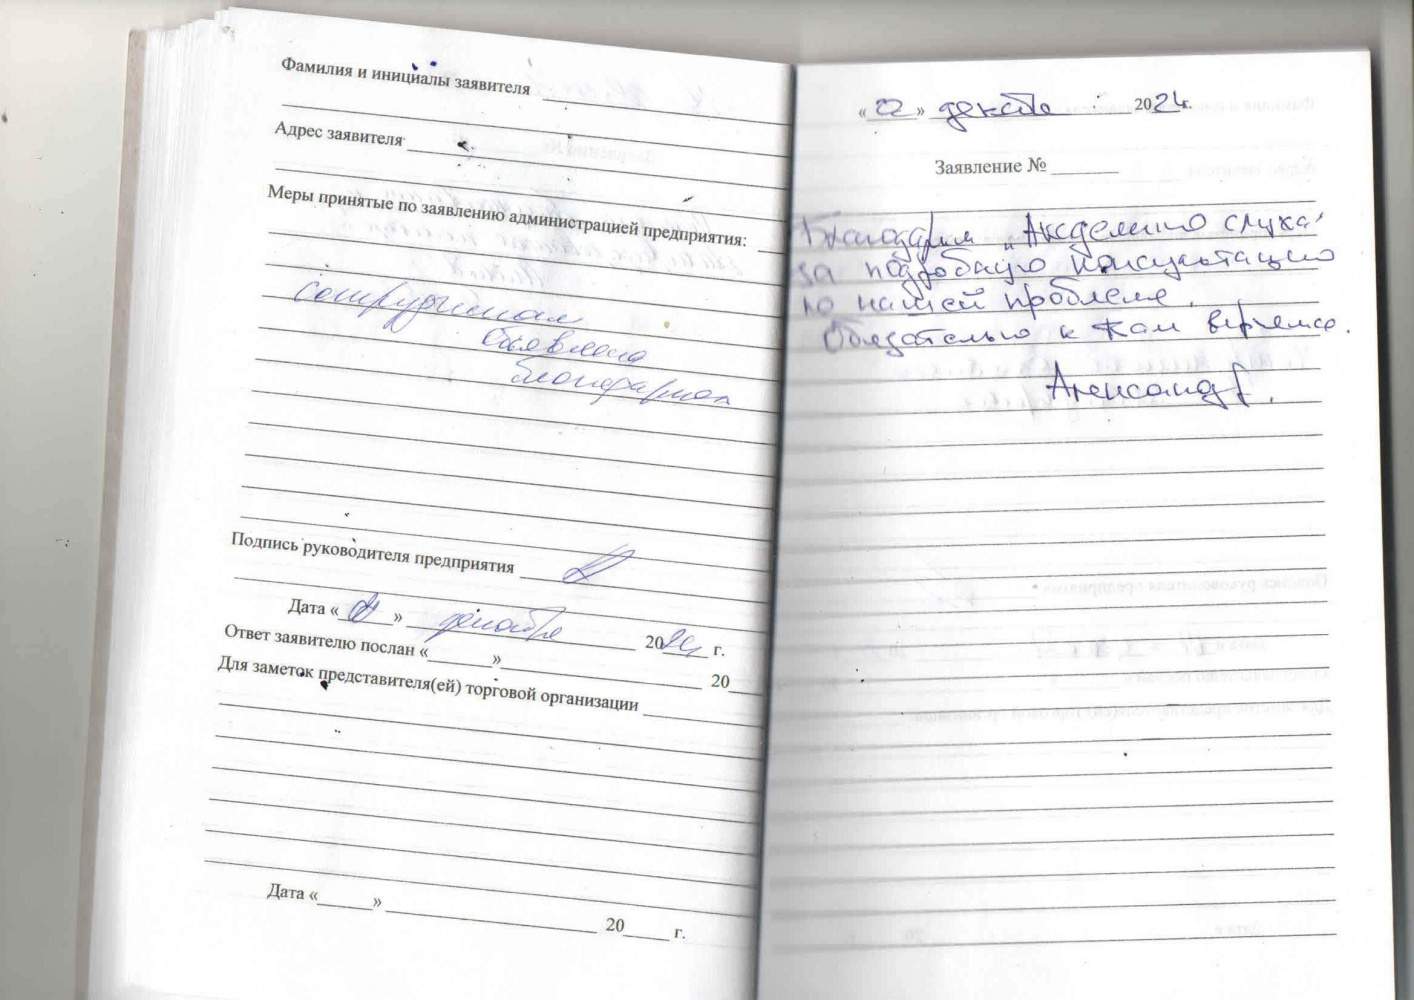 Фамилия и инициалы заявителя
Адрес заявителя
Меры принятые по заявлению администрацией предприятия:
сотрудникам
объявлена
благодарность
Подпись руководителя предприятия
Дата « » декабря 2024 г.
Ответ заявителю послан « » 20
Для заметок представителя(ей) торговой организации
Дата « » 20 г.
«22» декабря 2024г.
Заявление №
Благодарим "Академию слуха"
за подробную консультацию
по нашей проблеме.
Обязательно к Вам вернемся.
Александр.